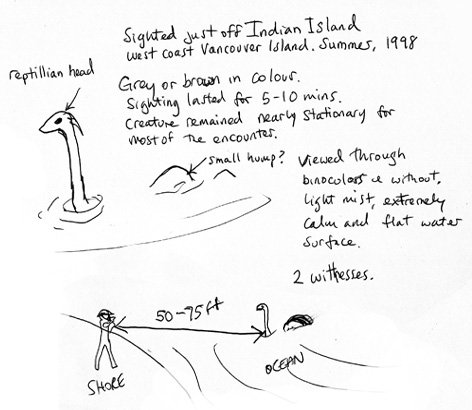 Sighted just off Indian Island
west coast Vancouver Island. Summer, 1998
reptillian head
Grey or brown in colour.
Sighting lasted for 5-10 mins.
Creature remained nearly stationary for
most of the encounter.
small hump?
Viewed through
binoculars & without,
light mist, extremely
calm and flat water
surface.
2 witnesses.
50-75ft
SHORE
OCEAN